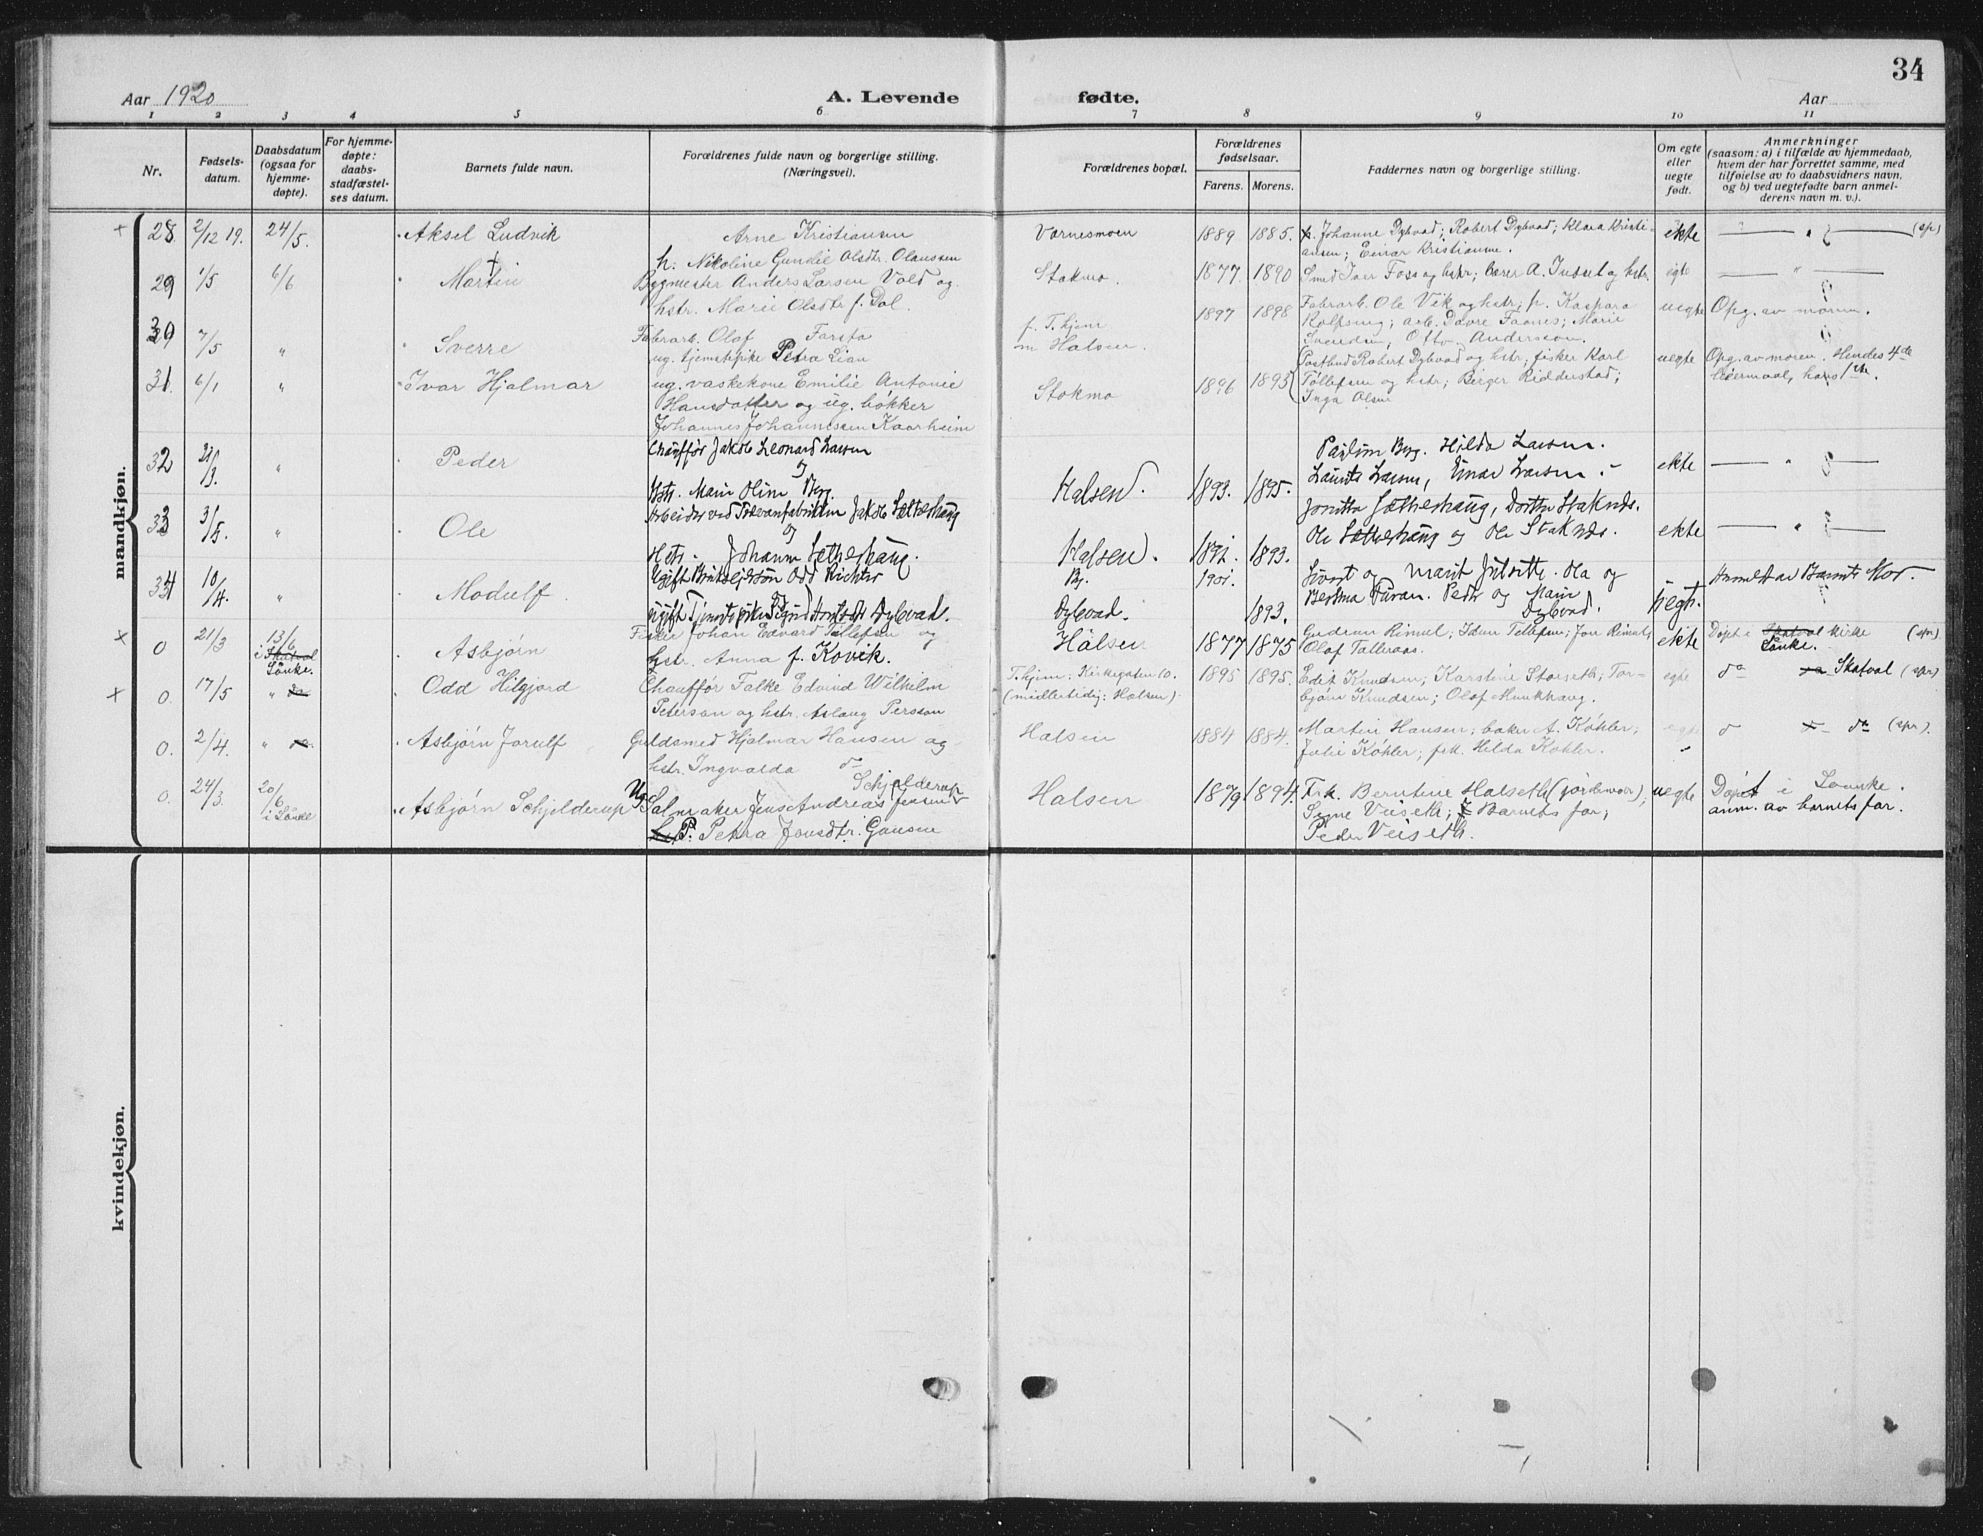 34
Aar 1920
A. Levende fødte.
Aar
1 2 3 4 5 6 7 8 9 10 11
Nr.
Fødsels-
datum.
Daabsdatum
(ogsaa for
hjemme-
døpte).
For hjemme-
døpte:
daabs-
stadfæstel-
ses datum.
Barnets fulde navn.
Forældrenes fulde navn og borgerlige stilling.
(Næringsvei).
Forældrenes bopæl.
Forældrenes
fødselsaar.
Farens. Morens.
Faddernes navn og borgerlige stilling.
Om egte
eller
uegte
født.
Anmerkninger
(saasom: a) i tilfælde av hjemmedaab,
hvem der har forrettet samme, med
tilføielse av to daabsvidners navn,
og b) ved uegtefødte barn anmel-
derens navn m. v.).
mandkjøn.
28 2/12 19. 24/5. Aksel Ludvik
Arne Kristiansen
h. Nikoline Gundie Olsdtr. Olaussen
Værnesmoen 1889 1885.
Johanne Dybvad; Robert Dybvad; Klara Kristi-
ansen; Einar Kristiansen.
ekte (sp)
29 1/5 6/6 Martin
Bygmester Anders Larsen Vold og
hstr. Marie Olsdtr f. Dal.
Stokmo 1877 1890
Smed Iver Foss og hstr; A. Indset og hstr.
egte
30 7/5 " Sverre
Fabrarb. Olaf Forsta
ug. tjenestepike Petra Lian
f. T.hjem
m Halsen. 1897 1898
Fabrarb. Ole Vik og hstr; f. Kaspara
Rolfseng; arb. Davre Faanes; Marie
Svendsen; Otto Andersson.
uegte Opg. av moren.
31. 6/1 " Ivar Hjalmar
ug. vaskekone Emilie Antonie
Hansdatter og ug. bøkker
Johannes Johannesen Kaarheim
Stokmo 1896 1893
Postbud Robert Dybvad og hstr; fisker Karl
Tøllefsen og hstr; Birger Ridderstad;
Inga Olsen
uegte Opg. av moren. Hendes 4de
leiermaal, hans 1ste.
32 /3. " Peder
Chauffør Jakob Leonard Larsen
og
Hstr. Marie Oline Berg.
Halsen. 1893. 1895.
Pauline Berg. Hilda Larsen.
Laurits Larsen, Einar Larsen.
ekte
33 3/5. " Ole
Arbeider ved Jakob Sætherhaug
og
Hstr. Johanna Sætherhaug.
Halsen. 1893.
Jonetta Sætherhaug, Dorthe Staknes.
Ole Sætherhaug og Ole Staknes.
ekte
34 10/4. " Modulf.
Ugift Odd Richter
Ugift Dybvad.
By. 1901.
Dybvad. 1893.
Sivert og Marit Julseth. Ola og
Berthea Turan. Peder og Marie
Dybvad.
Uegt. Anmeldt av Barnets Mor.
0 21/3 13/6 i Skatval Lånke. Asbjørn
Fisker Johan Edvard Tøllefsen og
hstr. Anna f. Kovik.
Halsen 1877 1875
Gudrun Rimul; Idun Tellefsen; Jon Rimul;
Olaf Talleraas.
ekte Døpt i Skatval kirke (spr)
Lånke.
0. 17/5 " da Odd Hilgjord
Chauffør Falke Edvind Wilhelm
Peterson og hstr. Aslaug Persson
T.hjem: Kirkegaten 10.
(midlertidig: Halsen). 1895 1895.
Edit Knudsen; Karstine Storseth; Tor-
bjørn Knudsen; Olaf Munkhaug.
egte do Skatval (spr)
0. 2/4. " Asbjørn Jorulf
Guldsmed Hjalmar Hansen og
hstr. Ingvalda do
Halsen 1884 1884.
Martin Hansen; baker A. Køhler;
Julie Køhler; frk. Hilda Køhler.
egte do (spr).
0. 24/3. 20/6 i Lånke Asbjørn Schjelderup
Ug. Salmaker Jens Andreas Jensen Schjelderup
P. Petra Jonsdtr. Gausen
Halsen 1879 1894.
Frk. Berntine Halseth (jordemor);
Signe Veiseth; Barnets far;
Peder Veiseth.
uegte Døpt i Lånke.
anm. av barnets far.
kvindekjøn.